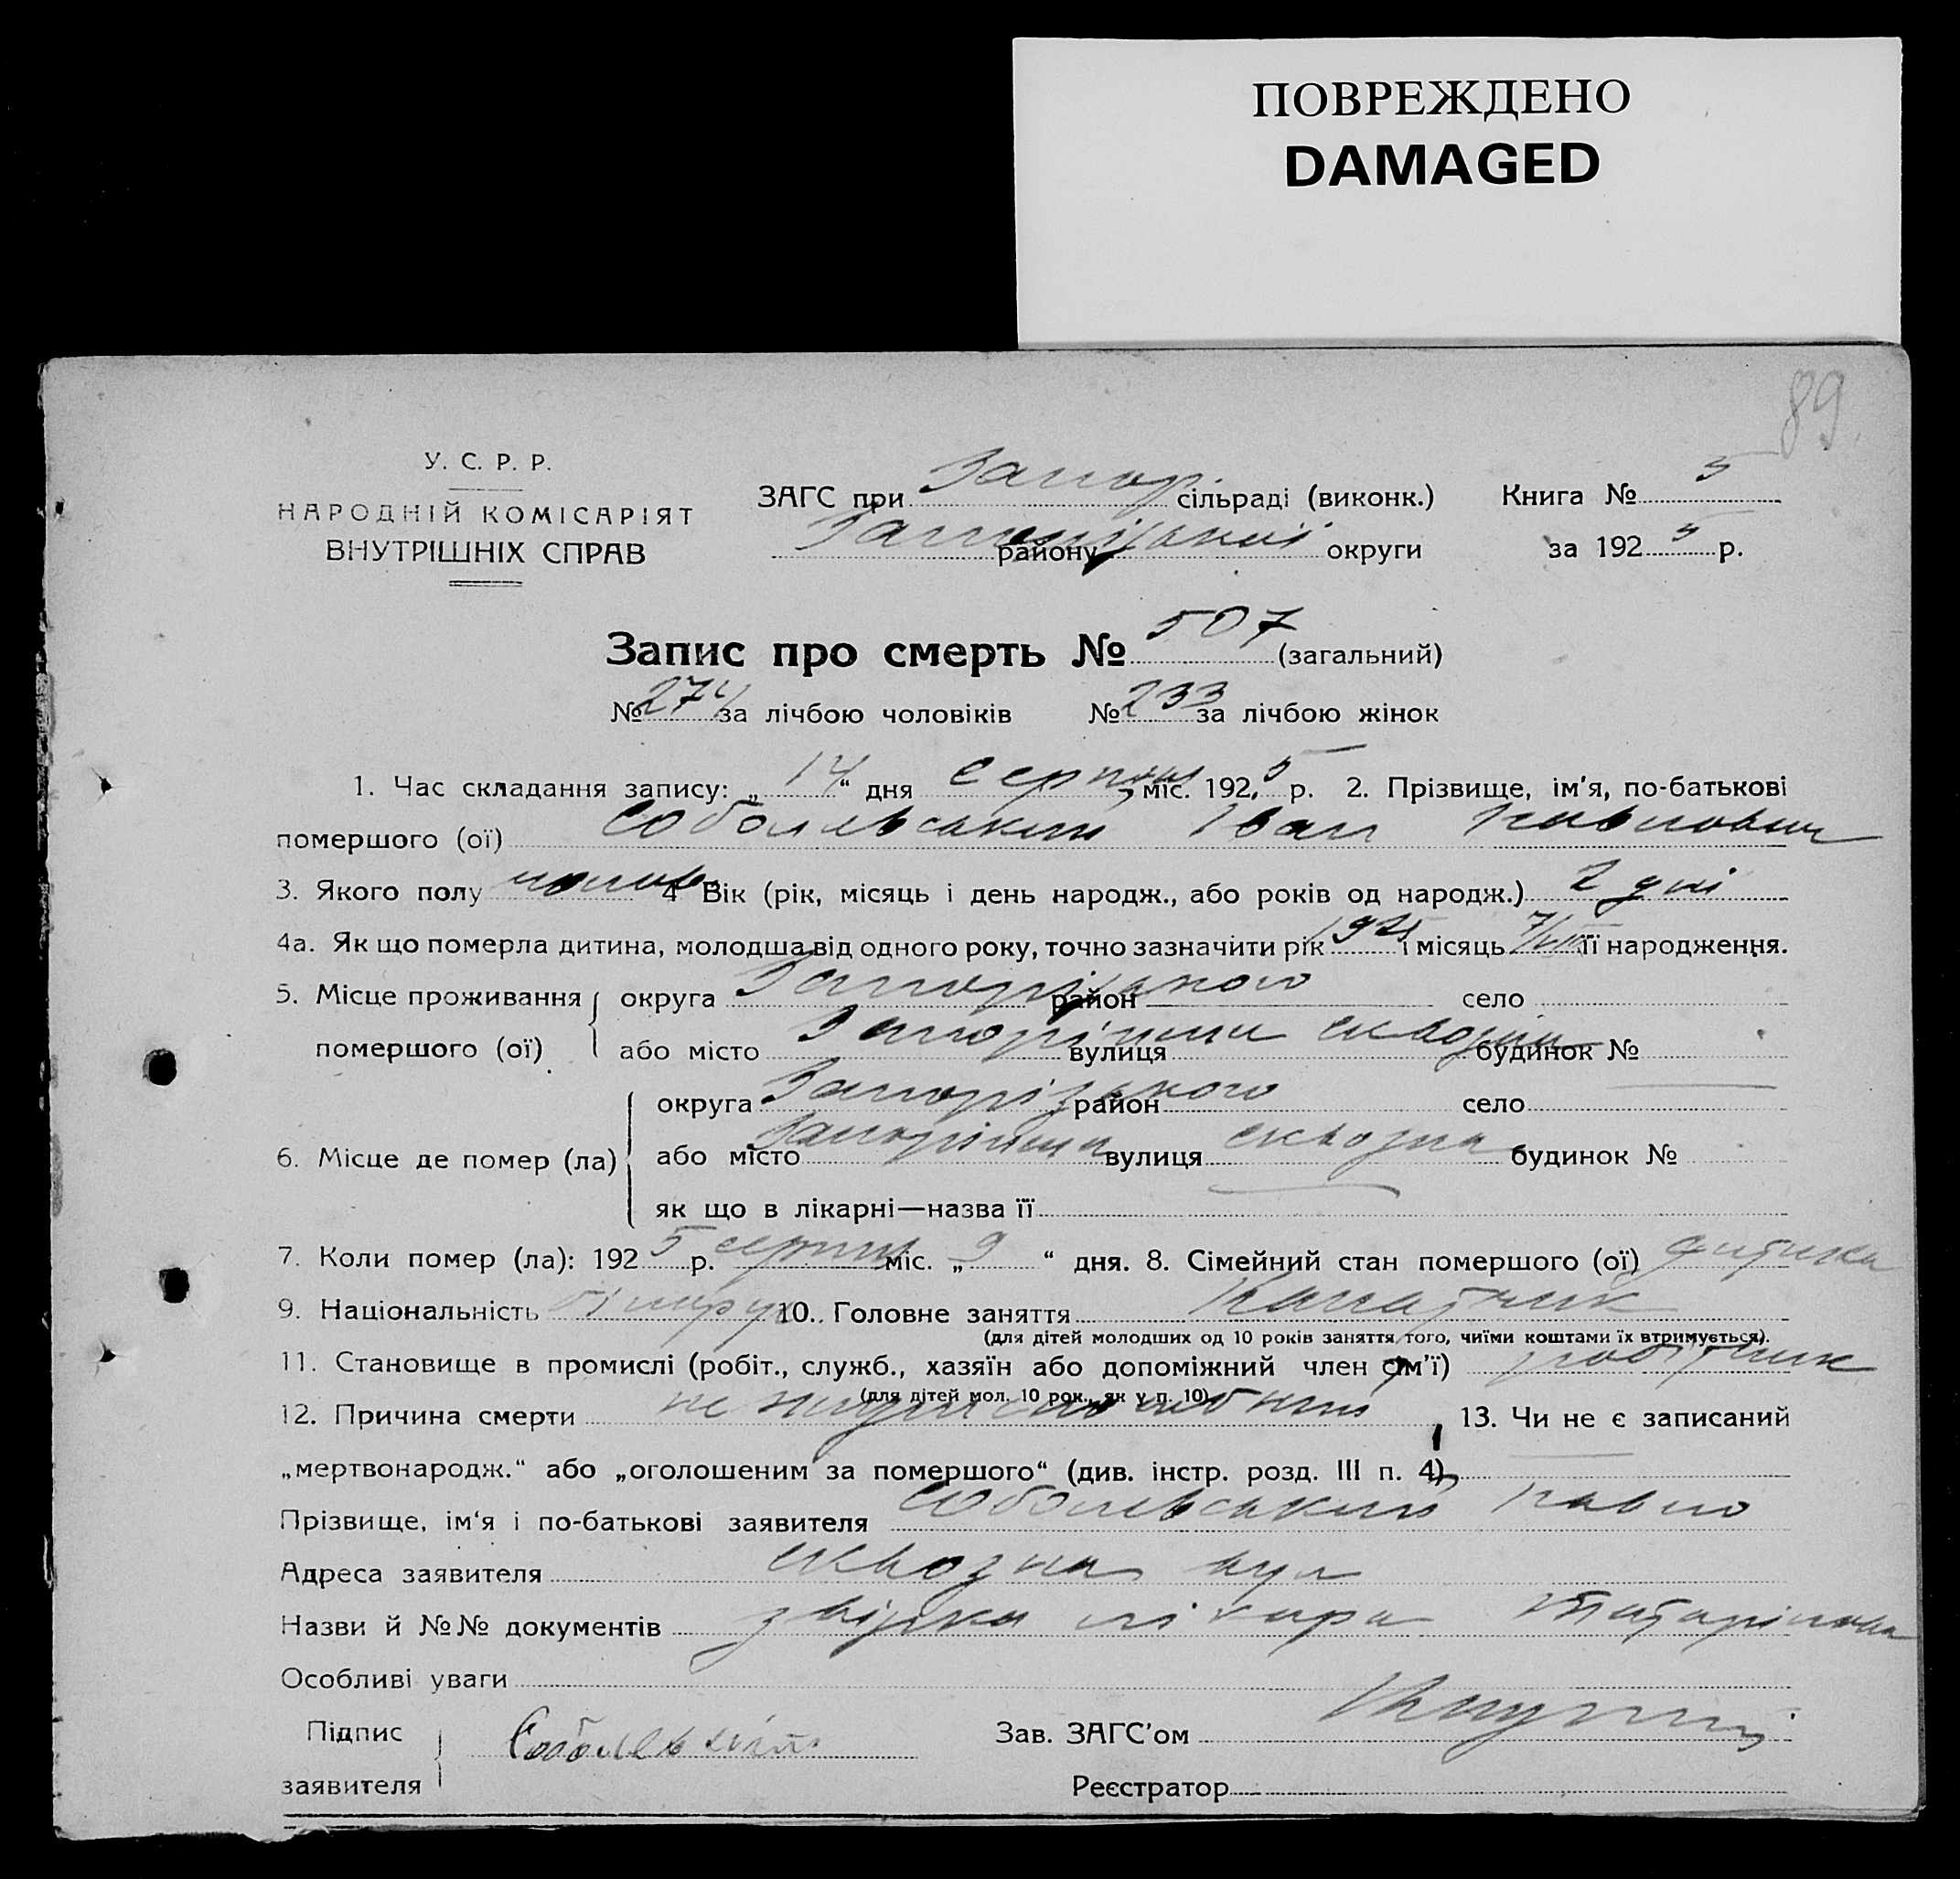 ПОВРЕЖДЕНО
DAMAGED
89
У. С. Р. Р.
НАРОДНІЙ КОМІСАРІЯТ
ВНУТРІШНІХ СПРАВ
ЗАГС при Запор. сільраді (виконк.) Книга № 5
Запорізької району округи за 1925 р.
Запис про смерть № 507 (загальний)
№ 274 за лічбою чоловіків № 233 за лічбою жінок
1. Час складання запису: „14“ дня Серпня міс. 1925 р. 2. Прізвище, ім'я, по-батькові
помершого (ої) Соболевський Іван Павлович
3. Якого полу чолов 4 Вік (рік, місяць і день народж., або років од народж.) 2 дні
4а. Як що померла дитина, молодша від одного року, точно зазначити рік 1925 і місяць 7/VIII її народження.
5. Місце проживання округа Запорізького район село
помершого (ої) або місто Запоріжжя вулиця сквозна будинок №
округа Запорізького район село
6. Місце де помер (ла) або місто Запоріжжя вулиця сквозна будинок №
як що в лікарні—назва її
7. Коли помер (ла): 1925 р. серпня міс. „9“ дня. 8. Сімейний стан помершого (ої) дитина
9. Національність 10. Головне заняття
(для дітей молодших од 10 років заняття того, чиїми коштами їх втримується).
11. Становище в промислі (робіт., служб., хазяїн або допоміжний член сім'ї) робітник
(для дітей мол. 10 рок., як у п. 10)
12. Причина смерти не 13. Чи не є записаний
„мертвонародж.“ або „оголошеним за помершого“ (див. інстр. розд. III п. 4)
Прізвище, ім'я і по-батькові заявителя Соболевський Павло
Адреса заявителя сквозна вул
Назви й №№ документів звідка лікаря
Особливі уваги
Підпис Соболевський Зав. ЗАГС'ом
заявителя Реєстратор